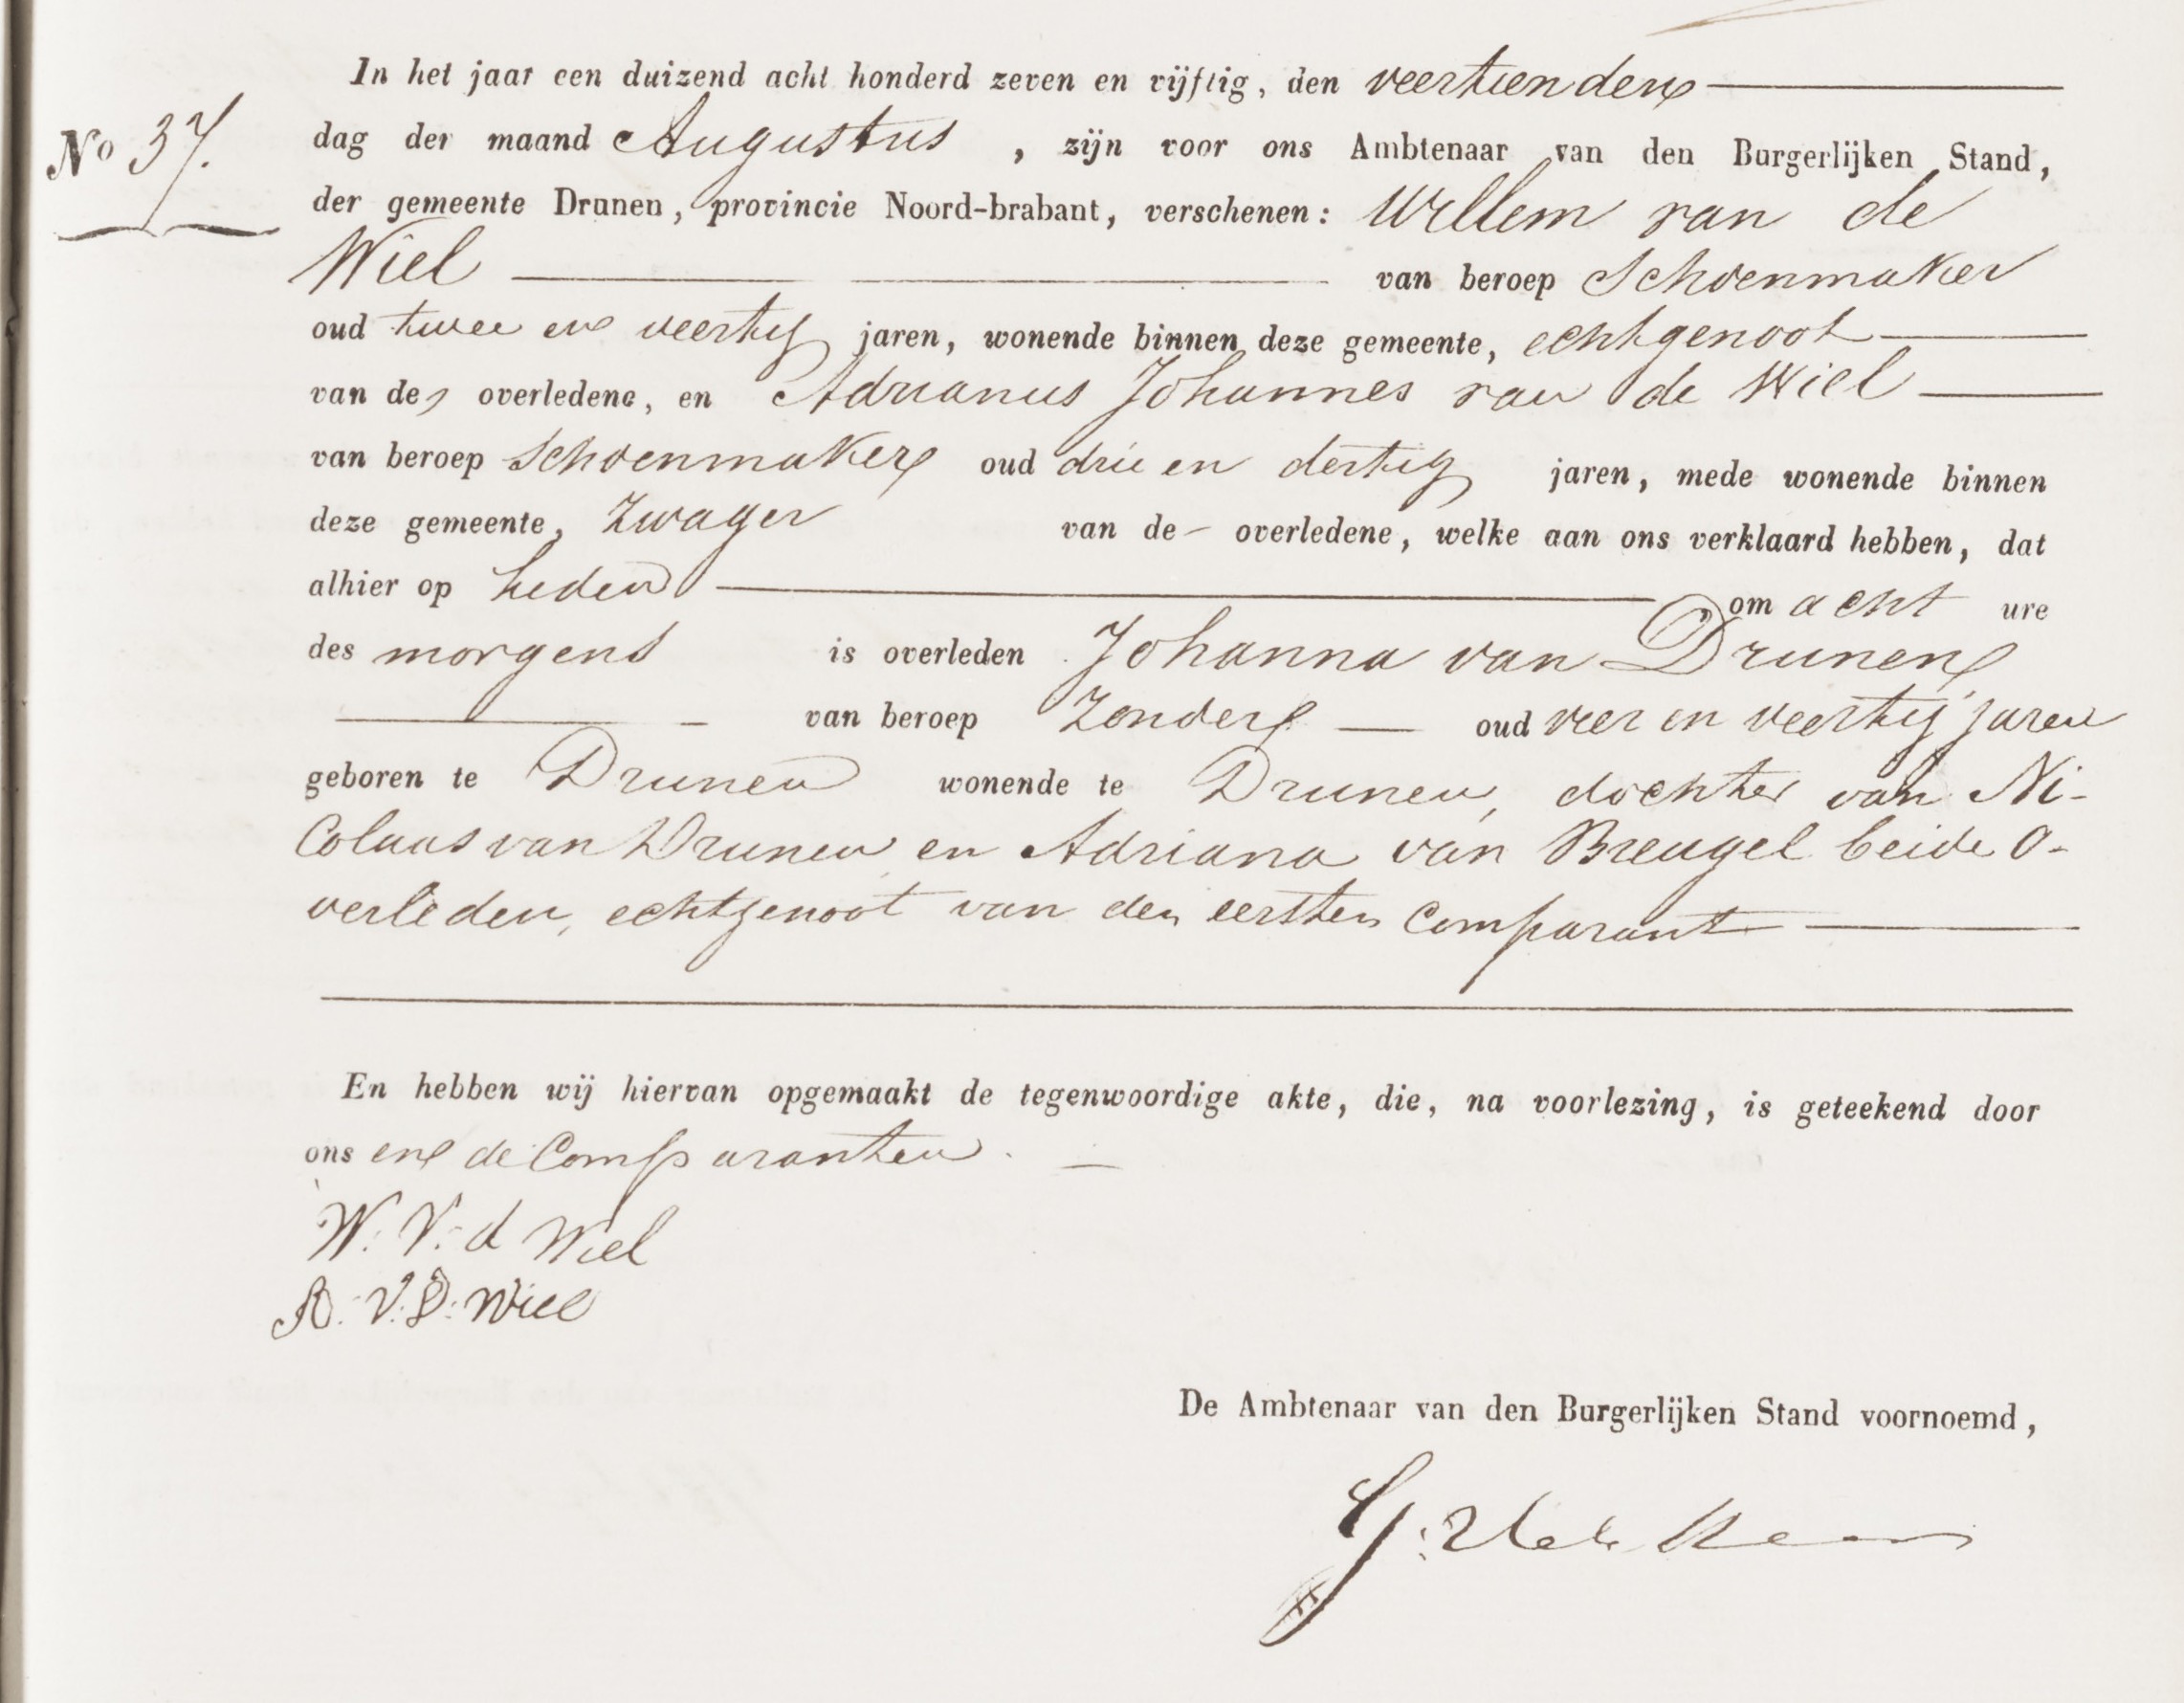 In het jaar een duizend acht honderd zeven en vijftig, den veertienden
No 37. dag der maand Augustus, zijn voor ons Ambtenaar van den Burgerlijken Stand,
der gemeente Drunen, provincie Noord-brabant, verschenen: Willem van de
Wiel van beroep Schoenmaker
oud twee en veertig jaren, wonende binnen deze gemeente, echtgenoot
van de overledene, en Adrianus Johannes van de Wiel
van beroep Schoenmaker oud drie en dertig jaren, mede wonende binnen
deze gemeente, Zwager van de overledene, welke aan ons verklaard hebben, dat
alhier op heden om acht ure
des morgens is overleden Johanna van Drunen
van beroep Zonder oud vier en veertig jaren
geboren te Drunen wonende te Drunen, dochter van Ni-
Colaas van Drunen en Adriana van Breugel beide o-
verleden, echtgenoot van den eersten Comparant
En hebben wij hiervan opgemaakt de tegenwoordige akte, die, na voorlezing, is geteekend door
ons en de Comparanten.
W. V. d Wiel
A. V. D. Wiel
De Ambtenaar van den Burgerlijken Stand voornoemd,